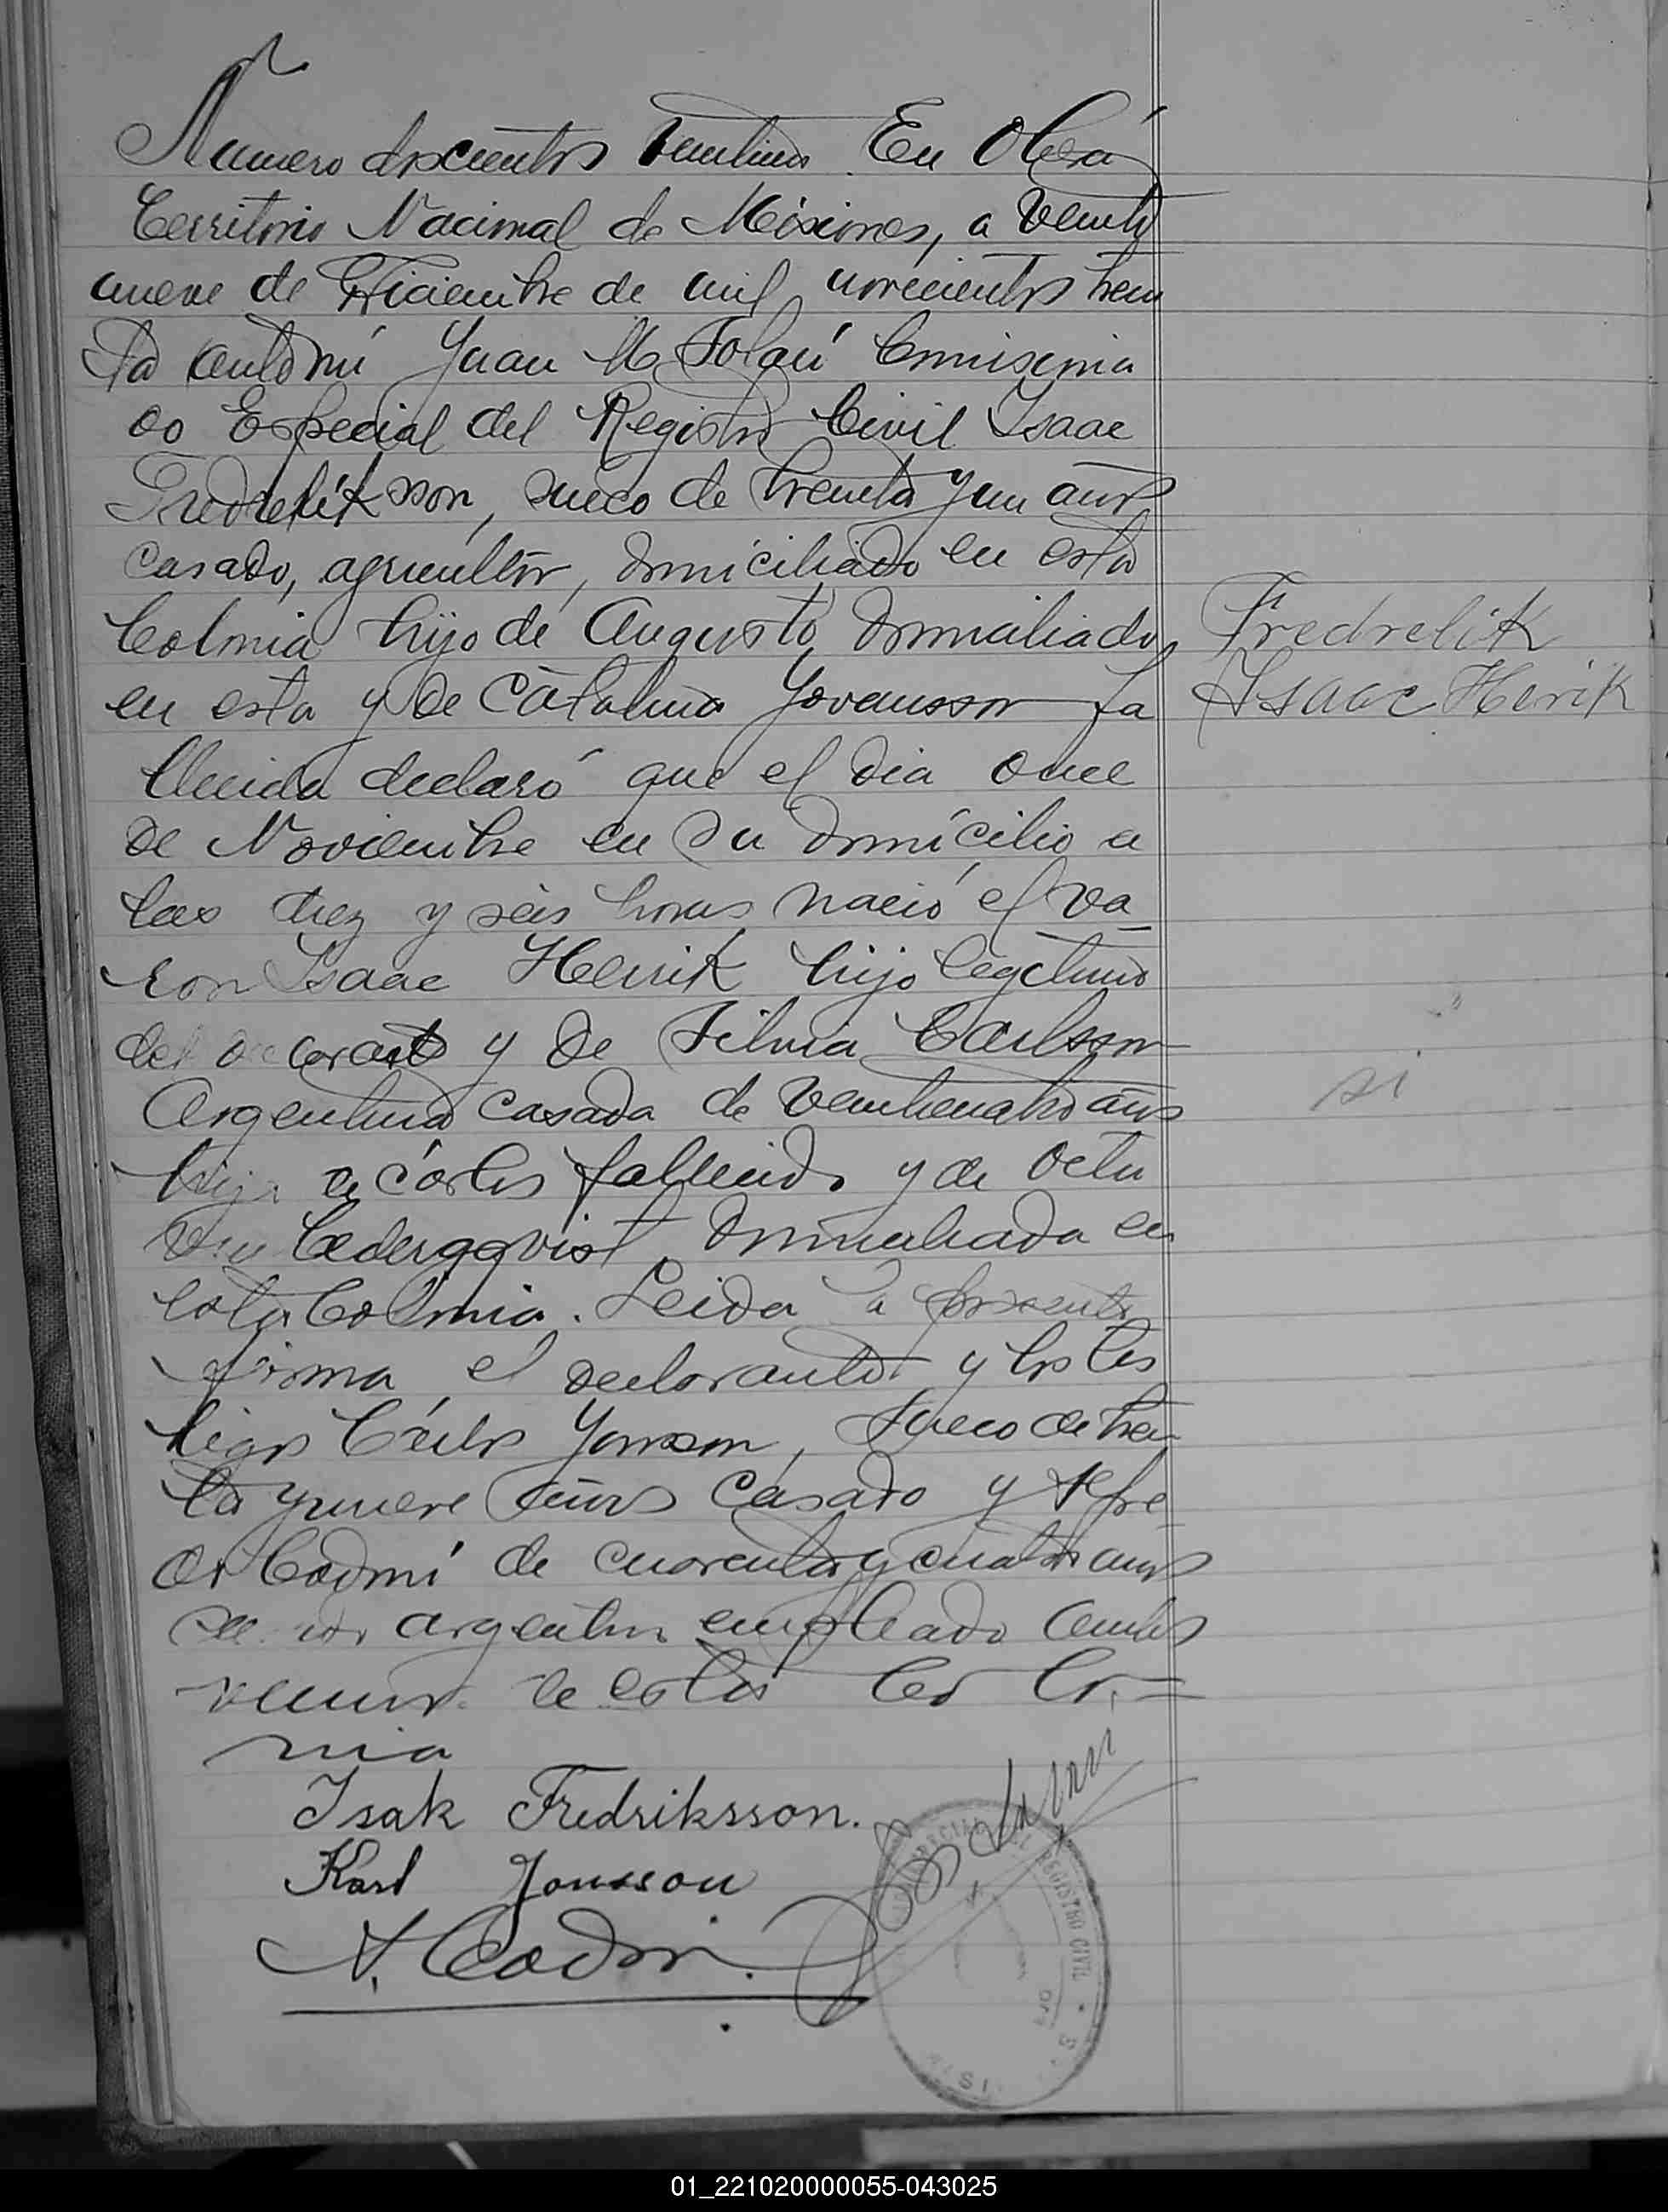 Numero doscientos veintiuno. En Oberá
Territorio Nacional de Misiones, a veinti
nueve de Diciembre de mil novecientos trein
ta ante mí Juan M Solari Comisiona
do Especial del Registro Civil Isaac
Fredrelikson, sueco de treinta y un años
casado, agricultor, domiciliado en esta
Colonia hijo de Augusto domiciliado
en esta y de Catalina Yovansson fa
llecida declaró que el dia once
de Noviembre en su domicilio a
las diez y seis horas nació el va
ron Isaac Henrik hijo legitimo
del declarante y de Silvia Carlsson
Argentina casada de veinticuatro años
hija de Carlos fallecido y de Octa
via Cederqqvist domiciliada en
esta Colonia. Leida la presente
firma el declarante y los tes
tigos Carlos Yonson, sueco de trein
ta y nueve años casado y Alfre
do Codoni de cuarenta y cuatro años
argentino empleado ambos
vecinos de esta Colo
nia
Fredrelik
Isaac Henrik
si
Isak Fredriksson.
Karl Jonsson
A. Codoni.
REGISTRO CIVIL
01_221020000055-043025